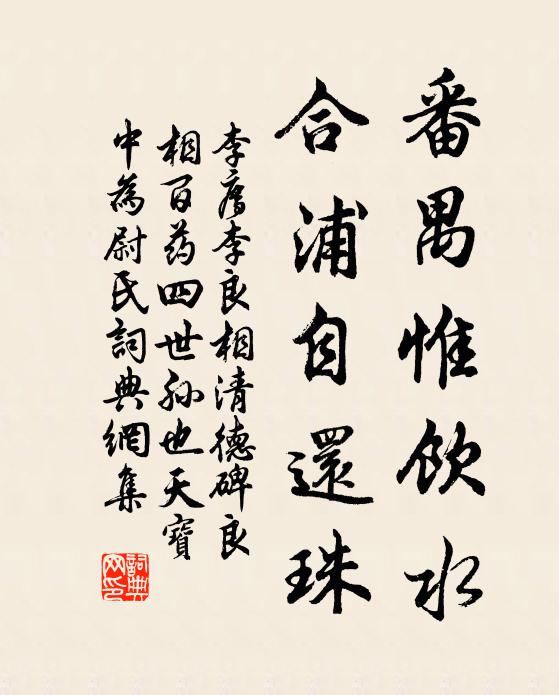 番禺惟飲水
合浦自還珠
李唐李良相清德碑良
相百药四世孙也天寶
中為尉氏詞典網集
詞典网印